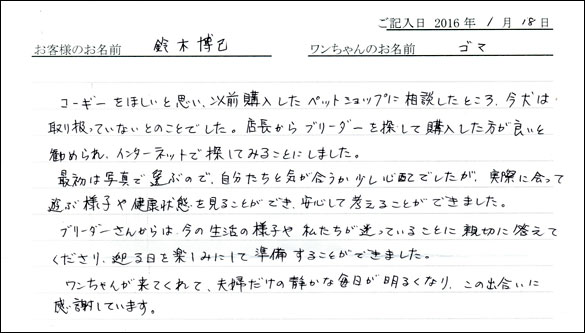 ご記入日 2016 年 1 月 18 日
お客様のお名前 鈴木博己 ワンちゃんのお名前 ゴマ
コーギーをほしいと思い、以前購入したペットショップに相談したところ、今犬は
取り扱っていないとのことでした。店長からブリーダーを探して購入した方が良いと
勧められ、インターネットで探してみることにしました。
最初は写真で選ぶので、自分たちと気が合うか少し心配でしたが、実際に会って
遊ぶ様子や健康状態を見ることができ、安心して考えることができました。
ブリーダーさんからは、今の生活の様子や私たちが迷っていることに親切に答えて
くださり、迎る日を楽しみにして準備することができました。
ワンちゃんが来てくれて、夫婦だけの静かな毎日が明るくなり、この出合いに
感謝しています。